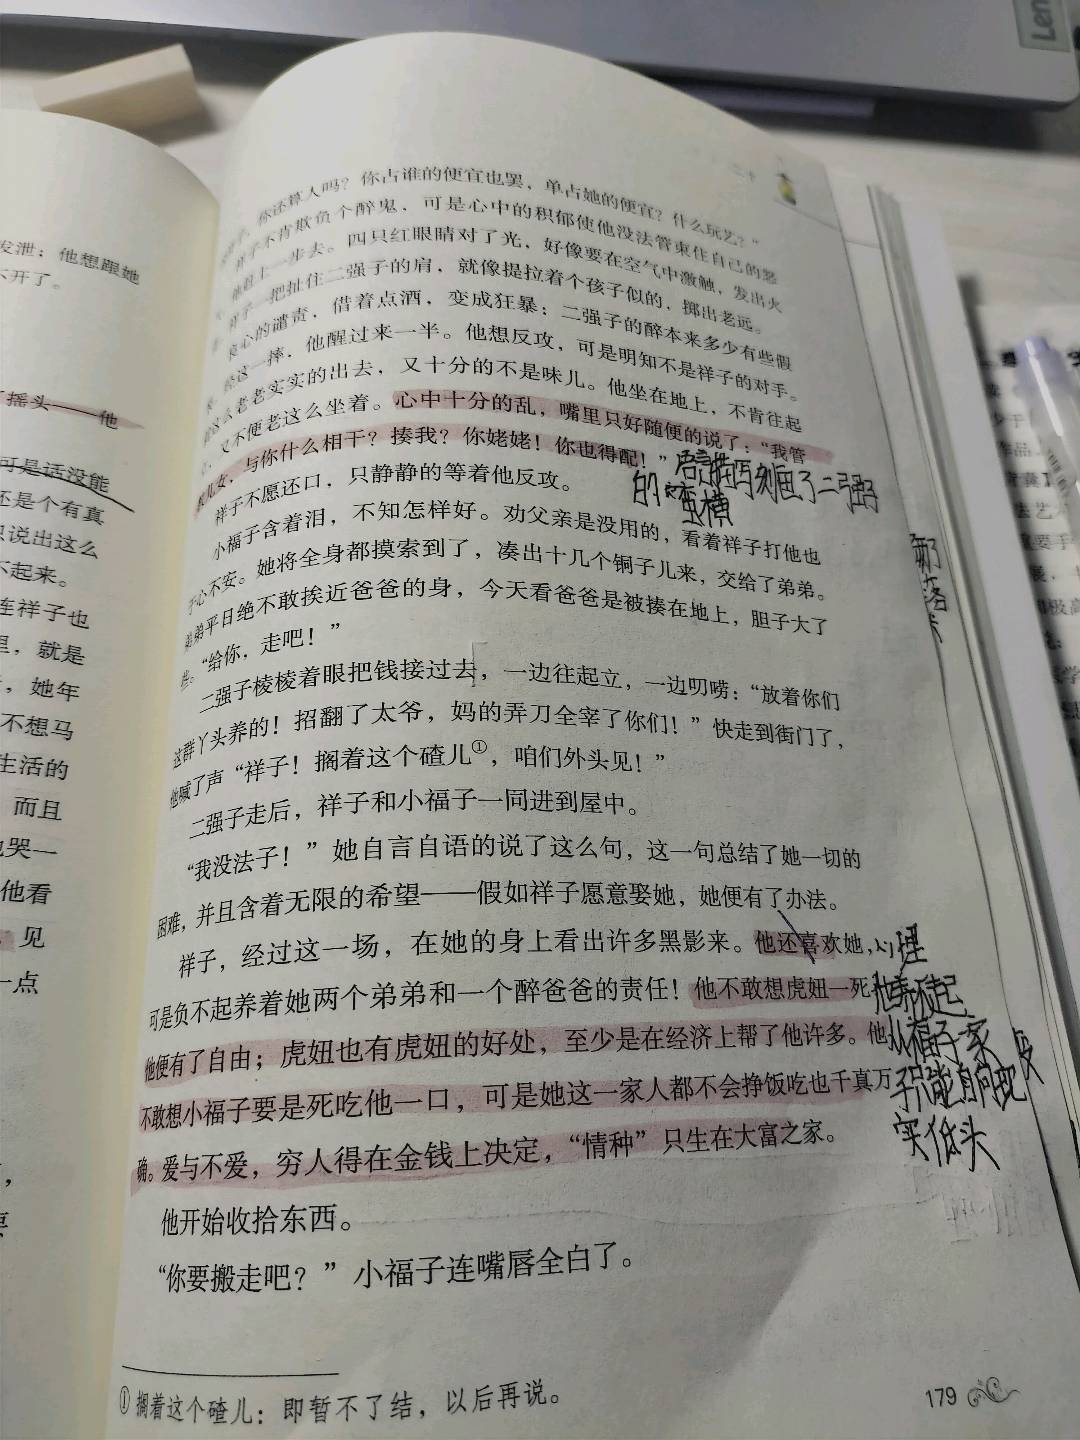 Len
二十
你还算人吗？你占谁的便宜也罢，单占她的便宜？什么玩艺？”
祥子不肯欺负个醉鬼，可是心中的积郁使他没法管束住自己的怒
他赶上一步去。四只红眼睛对了光，好像要在空气中激触，发出火
祥子一把扯住二强子的肩，就像提拉着个孩子似的，掷出老远。
良心的谴责，借着点酒，变成狂暴；二强子的醉本来多少有些假
经这一摔，他醒过来一半。他想反攻，可是明知不是祥子的对手。
这么老老实实的出去，又十分的不是味儿。他坐在地上，不肯往起
又不便老这么坐着。心中十分的乱，嘴里只好随便的说了：“我管
教儿女，与你什么相干？揍我？你姥姥！你也得配！”
祥子不愿还口，只静静的等着他反攻。
小福子含着泪，不知怎样好。劝父亲是没用的，看着祥子打他也
于心不安。她将全身都摸索到了，凑出十几个铜子儿来，交给了弟弟。
弟弟平日绝不敢挨近爸爸的身，今天看爸爸是被揍在地上，胆子大了
些。“给你，走吧！”
二强子棱棱着眼把钱接过去，一边往起立，一边叨唠：“放着你们
这群丫头养的！招翻了太爷，妈的弄刀全宰了你们！”快走到街门了，
他喊了声“祥子！搁着这个碴儿①，咱们外头见！”
二强子走后，祥子和小福子一同进到屋中。
“我没法子！”她自言自语的说了这么句，这一句总结了她一切的
困难，并且含着无限的希望——假如祥子愿意娶她，她便有了办法。
祥子，经过这一场，在她的身上看出许多黑影来。他还喜欢她，
可是负不起养着她两个弟弟和一个醉爸爸的责任！他不敢想虎妞一死
他便有了自由；虎妞也有虎妞的好处，至少是在经济上帮了他许多。他
不敢想小福子要是死吃他一口，可是她这一家人都不会挣饭吃也千真万
确。爱与不爱，穷人得在金钱上决定，“情种”只生在大富之家。
他开始收拾东西。
“你要搬走吧？”小福子连嘴唇全白了。
①搁着这个碴儿：即暂不了结，以后再说。
179
语言描写刻画了二强子
的蛮横
心理
他养不起
小福子家
只能向现
实低头
发泄；他想跟她
不开了。
摇头——他
可是话没能
还是个有真
说出这么
不起来。
连祥子也
里，就是
她年
不想马
生活的
而且
哭一
他看
见
一点